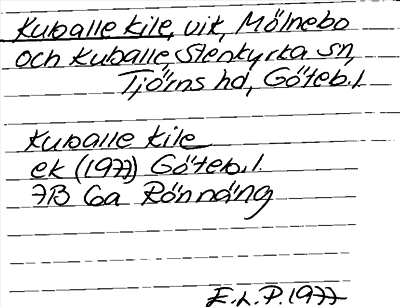 Kuballe kile, vik, Mölnebo
och Kuballe, Stenkyrka sn,
Tjörns hd, Göteb.l.
Kuballe kile
ek (1977) Göteb.l.
7B 6a Rönnäng
E.L.P. 1977